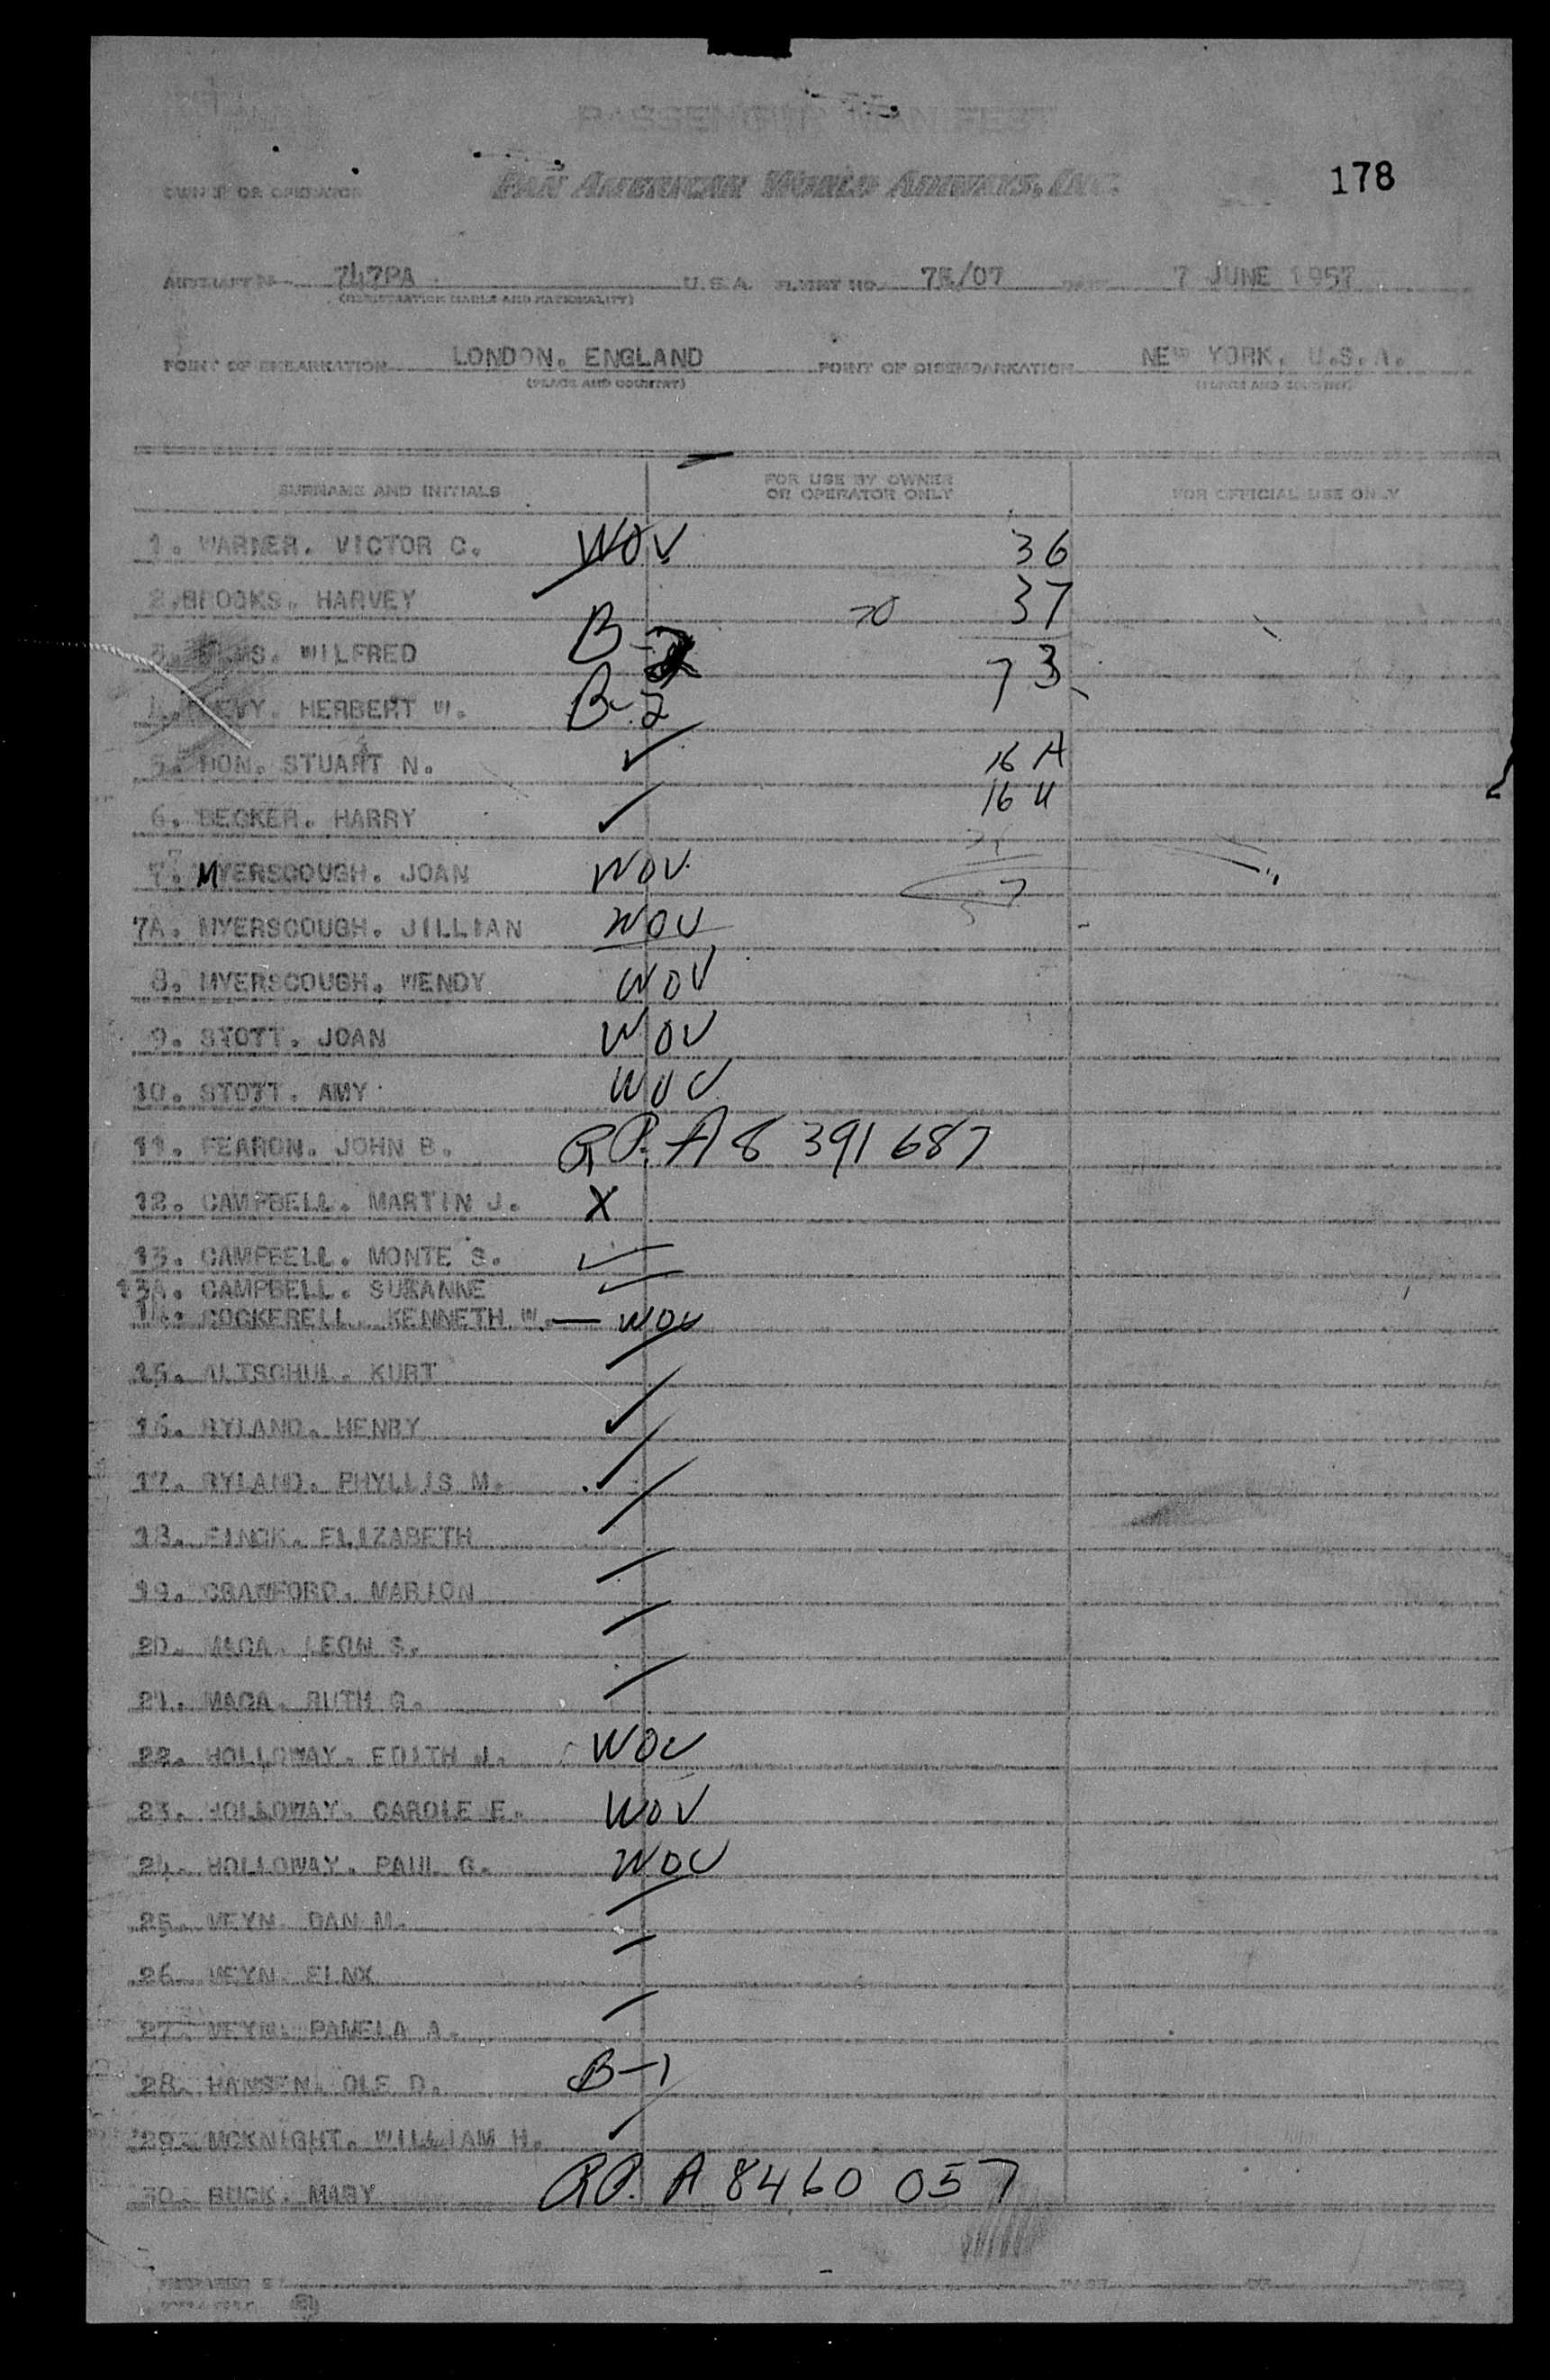 PASSENGER MANIFEST
178
OWNER OR OPERATOR PAN AMERICAN WORLD AIRWAYS, INC.
AIRCRAFT No 747PA U.S.A. FLIGHT NO. 7 JUNE 1957
(REGISTRATION MARKS AND NATIONALITY)
POINT OF EMBARKATION LONDON. ENGLAND POINT OF DISEMBARKATION NEW YORK. U.S.A.
(PLACE AND COUNTRY) (PLACE AND COUNTRY)
SURNAME AND INITIALS FOR USE BY OWNER OR OPERATOR ONLY FOR OFFICIAL USE ONLY
1. WARNER. VICTOR C. WOV 36
2. BROOKS. HARVEY 70 37
WILFRED B-2 73
HERBERT W. B-2
5. STUART N. ✓ 16 A
6. BECKER. HARRY ✓ 16 U
7. MYERSCOUGH. JOAN WOV
7A. MYERSCOUGH. JILLIAN WOV
8. MYERSCOUGH. WENDY WOV
9. STOTT. JOAN WOV
10. STOTT. AMY WOV
11. FEARON. JOHN B. RP. A8 391 687
12. CAMPBELL. MARTIN J. X
13. CAMPBELL. MONTE S. ✓
13A. CAMPBELL. SUZANNE ✓
14. COCKERELL. KENNETH W. — WOV
15. ALTSCHUL. KURT
16. RYLAND. HENRY ✓
17. RYLAND. PHYLLIS M. ✓
18. ELIZABETH
19. CRAWFORD. MARION
20. MACA. LEON S.
21. MACA. RUTH G.
22. HOLLOWAY. EDITH J. WOV
23. HOLLOWAY. CAROLE E. WOV
24. HOLLOWAY. PAUL G. WOV
25. DAN M.
26.
27. PAMELA A.
28. HANSEN. OLE D. B-1
29. MCKNIGHT. WILLIAM H. ✓
30. BUCK. MARY RP. A 8460 057